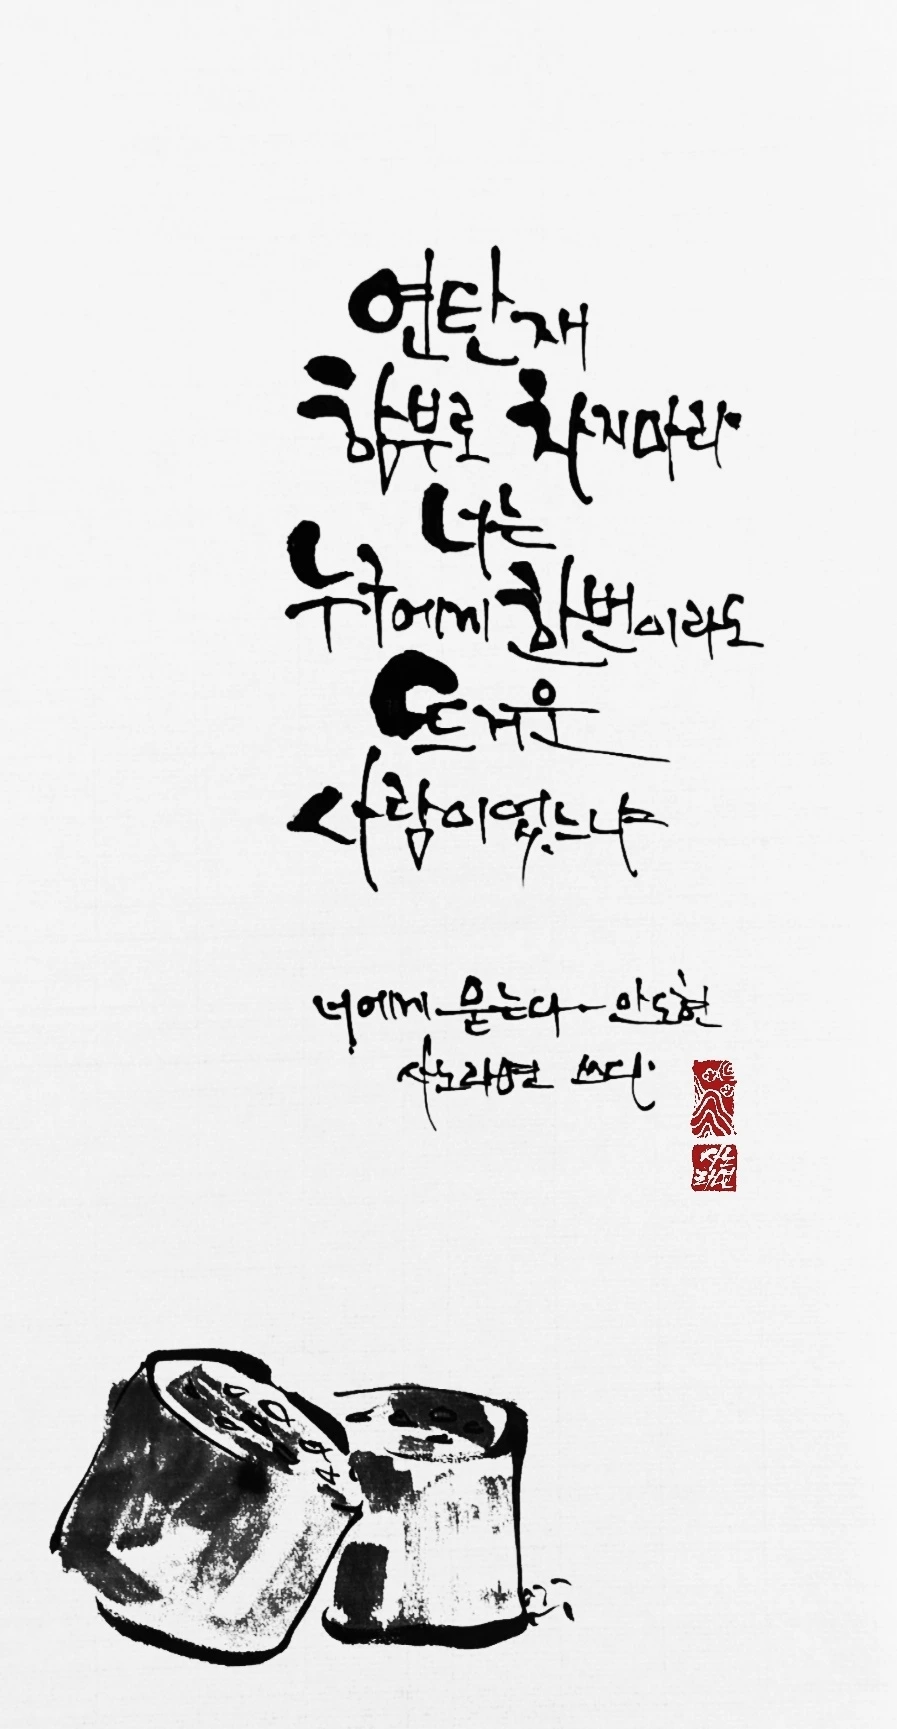 연탄재
함부로 차지마라.
너는
누구에게 한번이라도
뜨거운
사람이었느냐
너에게 묻는다- 안도현
쓰다.